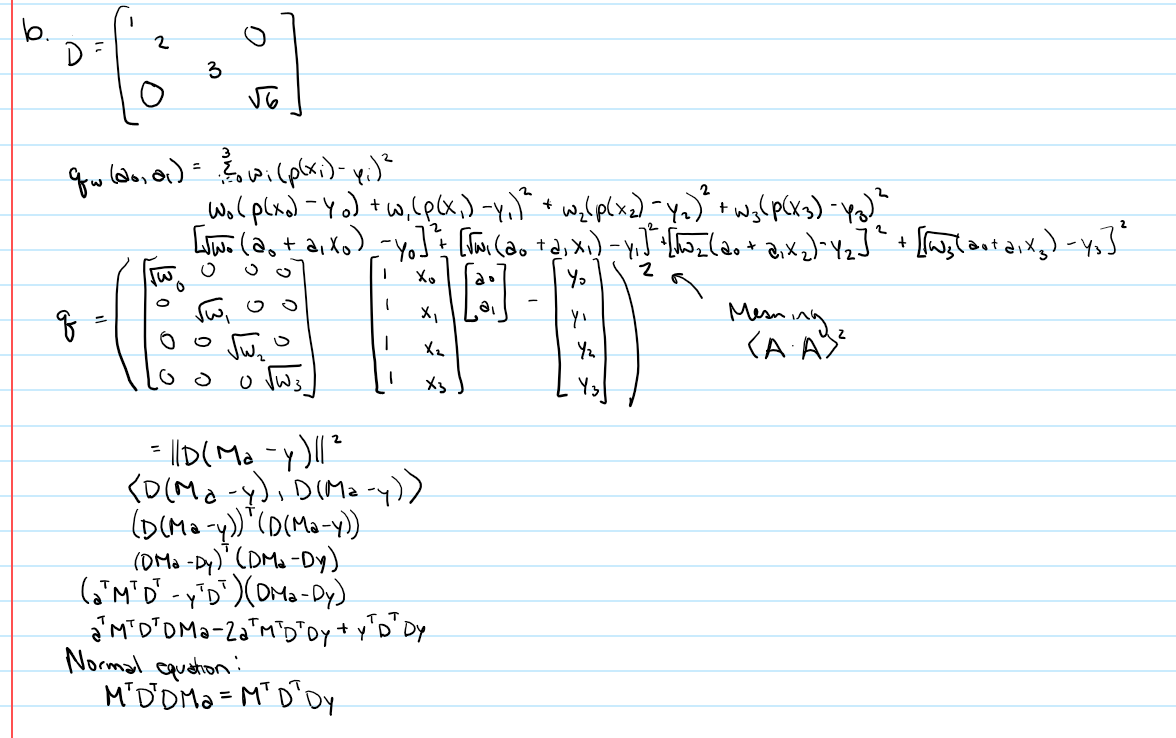 b. D = [1 2 0 3 0 √6]
q_w (a₀, a₁) = Σ³ᵢ₌₀ wᵢ (p(xᵢ) - yᵢ)²
w₀(p(x₀) - y₀) + w₁(p(x₁) - y₁)² + w₂(p(x₂) - y₂)² + w₃(p(x₃) - y₃)²
[√w₀(a₀ + a₁x₀) - y₀]² + [√w₁(a₀ + a₁x₁) - y₁]² + [√w₂(a₀ + a₁x₂) - y₂]² + [√w₃(a₀ + a₁x₃) - y₃]²
q = ([√w₀ 0 0 0; 0 √w₁ 0 0; 0 0 √w₂ 0; 0 0 0 √w₃] [1 x₀; 1 x₁; 1 x₂; 1 x₃] [a₀; a₁] - [y₀; y₁; y₂; y₃])²
Meaning
⟨A · A⟩²
= ||D(Ma - y)||²
⟨D(Ma - y), D(Ma - y)⟩
(D(Ma - y))ᵀ(D(Ma - y))
(DMa - Dy)ᵀ(DMa - Dy)
(aᵀMᵀDᵀ - yᵀDᵀ)(DMa - Dy)
aᵀMᵀDᵀDMa - 2aᵀMᵀDᵀDy + yᵀDᵀDy
Normal equation:
MᵀDᵀDMa = MᵀDᵀDy